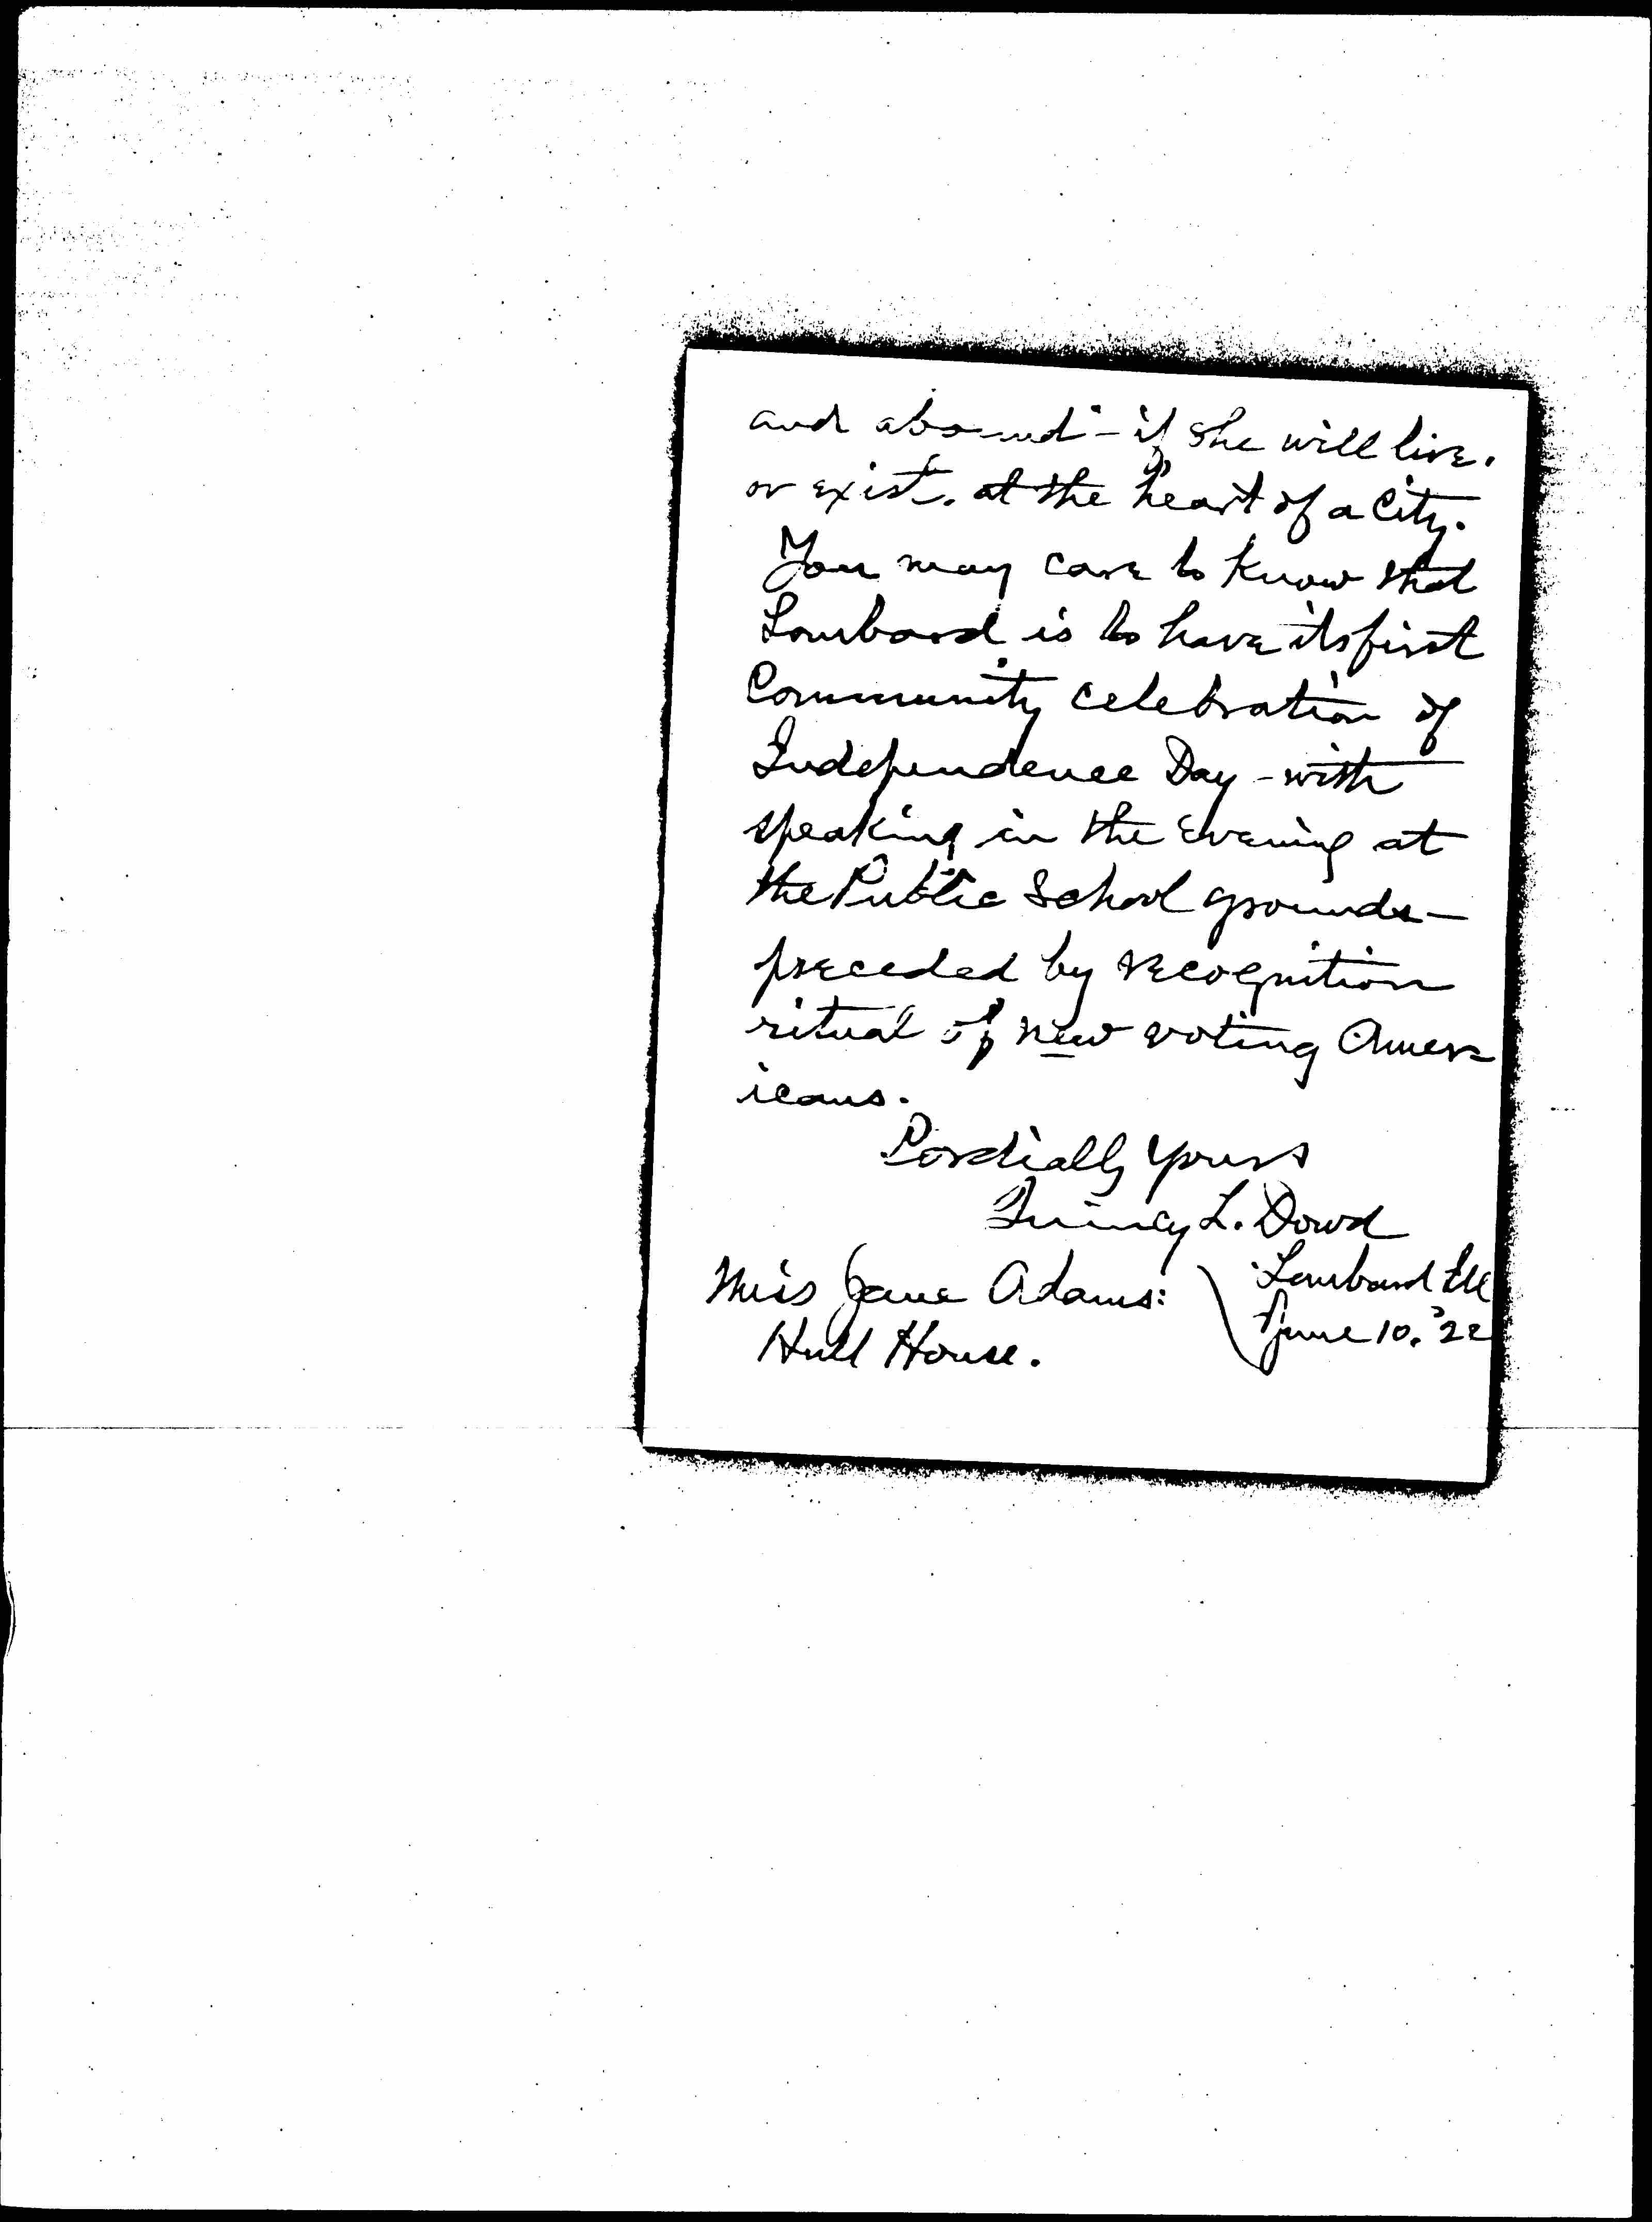 and abound - if she will live.
or exist. at the heart of a City.
You may care to know that
Lombard is to have its first
Community celebration of
Independence Day - with
speaking in the evening at
the Public School grounds -
preceded by recognition
ritual of new voting Amer-
icans.
Cordially yours
Quincy L. Dowd
Miss Jane Adams:
Hull House.
Lombard Ill
June 10. '22